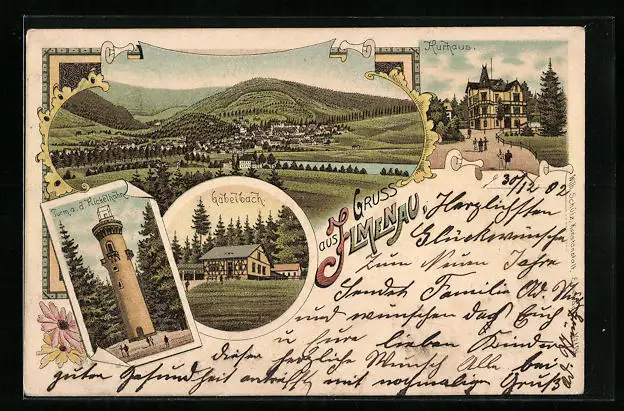 Kurhaus.
Turm a. d. Kickelhahn
Gabelbach.
GRUSS
aus ILMENAU.
30/12 02
Herzlichsten
Glückwünsche
Zum Neuen Jahre
Sendet Familie Ad.
und wünschen das Euch
u Eure lieben Kinder
dieser herzliche Wunsch Alle bei
guter Gesundheit antrifft mit nochmaligen Gruß